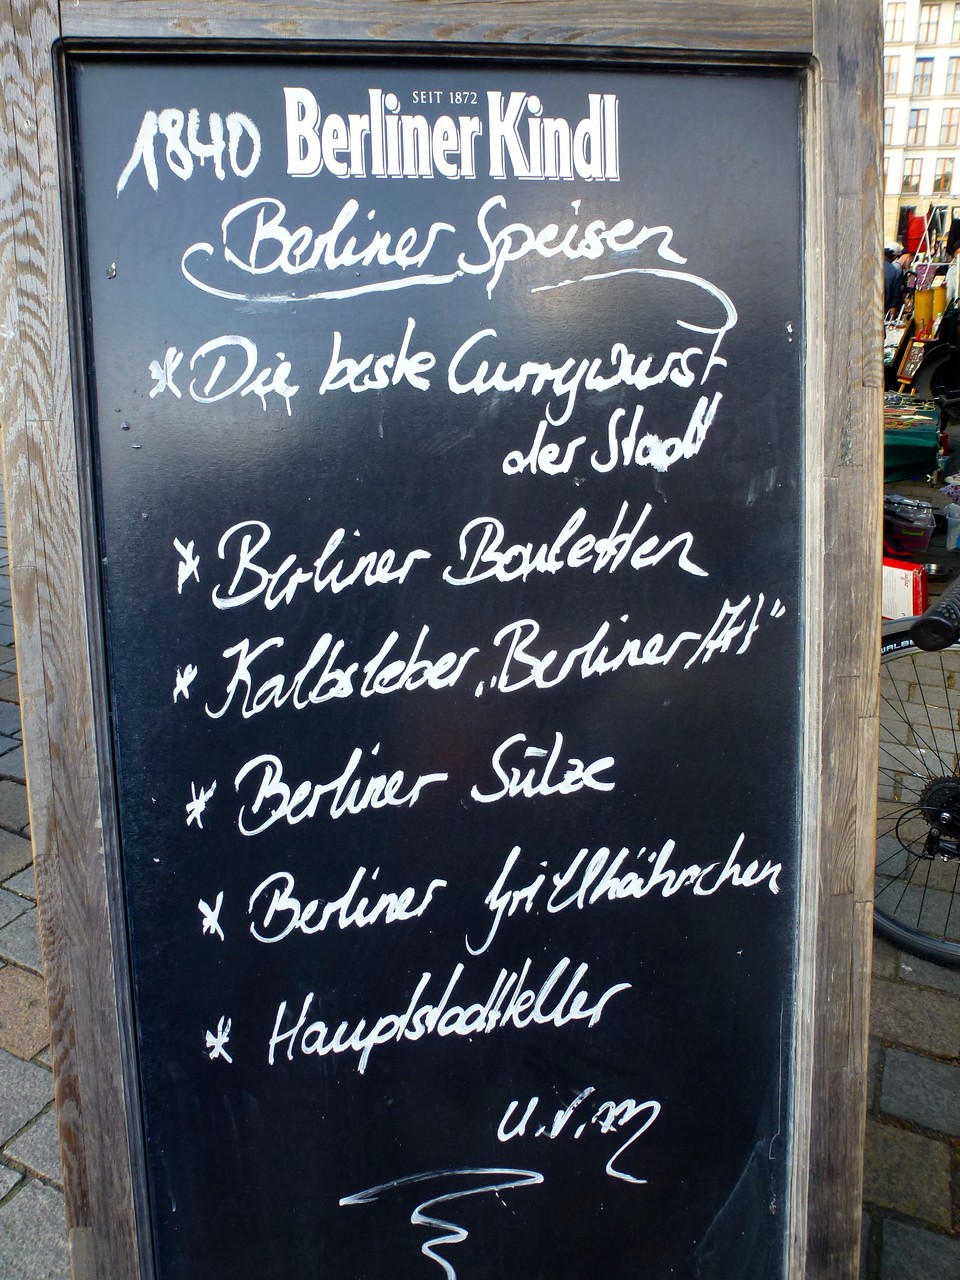 SEIT 1872
1840 Berliner Kindl
Berliner Speisen
* Die beste Currywurst
der Stadt
* Berliner Bouletten
* Kalbsleber „Berliner Art"
* Berliner Sülze
* Berliner Grillhähnchen
* Hauptstadtteller
u.v.m